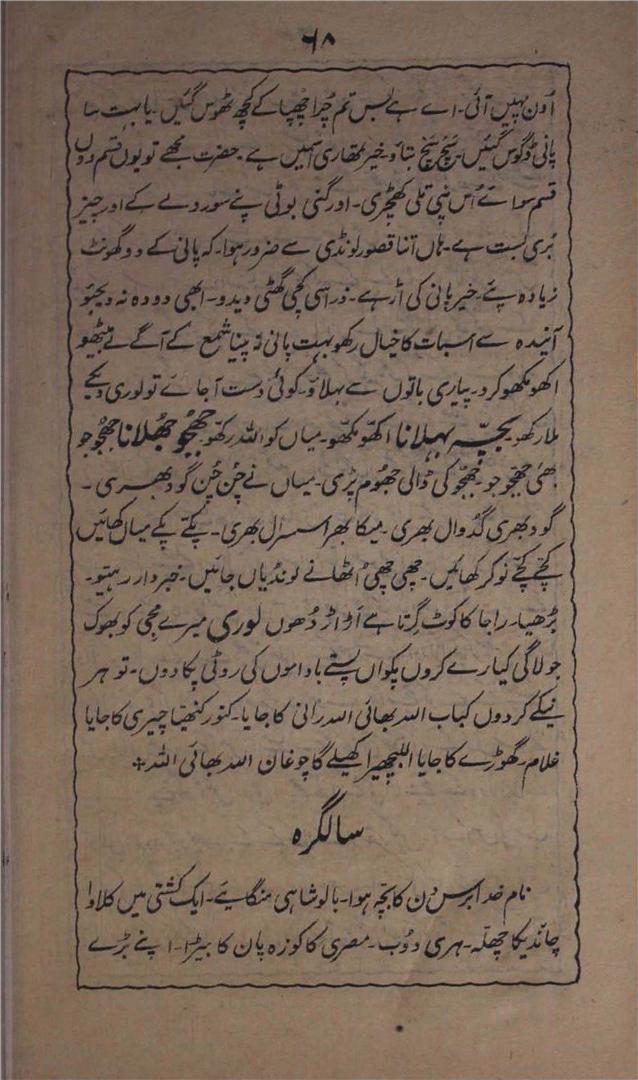 ۶۸
اُون نہیں آئی۔ اے ہے بس تم چُرا چھپا کے کچھ ٹھوس گئیں۔ یا بہت سا
پانی ڈگوس گئیں۔ سَچ سَچ بتاؤ۔ خیر تمھاری آنہیں ہے۔ حضرت مجھے تو یوں قسم دوں
قسم سوائے اُس نپی تلی کھچڑی۔ اور گنی بوٹی پنے سوردیے کے اور چیز
بُری لبت ہے۔ ہاں اتنا قصور لونڈی سے ضرور ہوا۔ کہ پانی کے دو گھونٹ
زیادہ پئے۔ خیر پانی کی آڑ ہے۔ ذراسی کچی گھٹی دیدو۔ ابھی دودہ نہ دیجئو
آئیندہ سے اسبات کا خیال رکھو بہت پانی نہ پینا شمع کے آگے لے بیٹھو
اکھو مکھو کرد۔ پیاری باتوں سے بہلاؤ۔ کوئی دست آجائے تو لوری دیکے
ملا رکھو بچّہ بہلانا اکھّو مکھّو۔ میاں کو اللہ رکھّو جھجُّو جھُلانا جھجُّو جو
بھئی جھجُّو جو جھجُّو کی ڈالی جھُوم پڑی۔ میاں نے چُن چُن گود بھری۔
گود بھری گڈوال بھری۔ میکا بھرا سسرال بھری۔ پکّے پکّے میاں کھائیں
کچّے کچّے نوکر کھائیں۔ چھی چھی اُٹھانے لونڈیاں جائیں۔ خبردار رہتیو۔
بڑھیا۔ راجا کا کوٹ گِرتا ہے اَڑاڑ دُھوں لوری میرے مجی کو بھوک
جو لاگی کیارے کروں پکوان پستے باداموں کی روٹی پکا دوں۔ تو ہر
نیکے کردوں کباب اللہ بھائی اللہ رانی کا جایا۔ کنور کنھیّا چیری کا جایا
غلام۔ گھوڑے کا جایا البیچھیرا کھیلے گا چوغان اللہ بھائی اللہ
سالگرہ
نام خدا برس دن کا بچّہ ہوا۔ بالوشاہی منگایئے۔ ایک کشتی میں کلاوا
چاندیکا چھلّہ۔ ہری دُوب۔ مصری کا کوزہ پان کا بیڑا۔ ا پنے بڑے